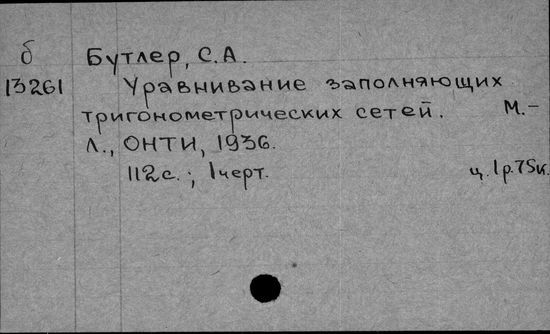 б Бутлер, С.А.
13261 Уравнивание заполняющих
тригонометрических сетей. М.-
Л., ОНТИ, 1936.
112с.; 1черт. ц.1р.75к.